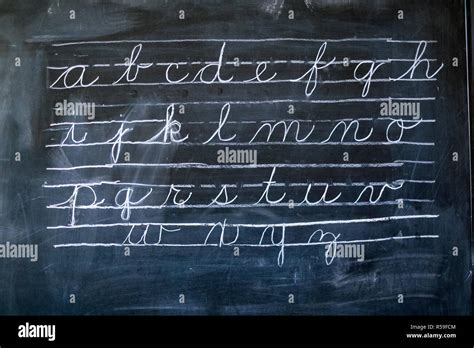 a b c d e f g h
i j k l m n o
p q r s t u v
w x y z
alamy
alamy
Image ID: R59FCM
www.alamy.com